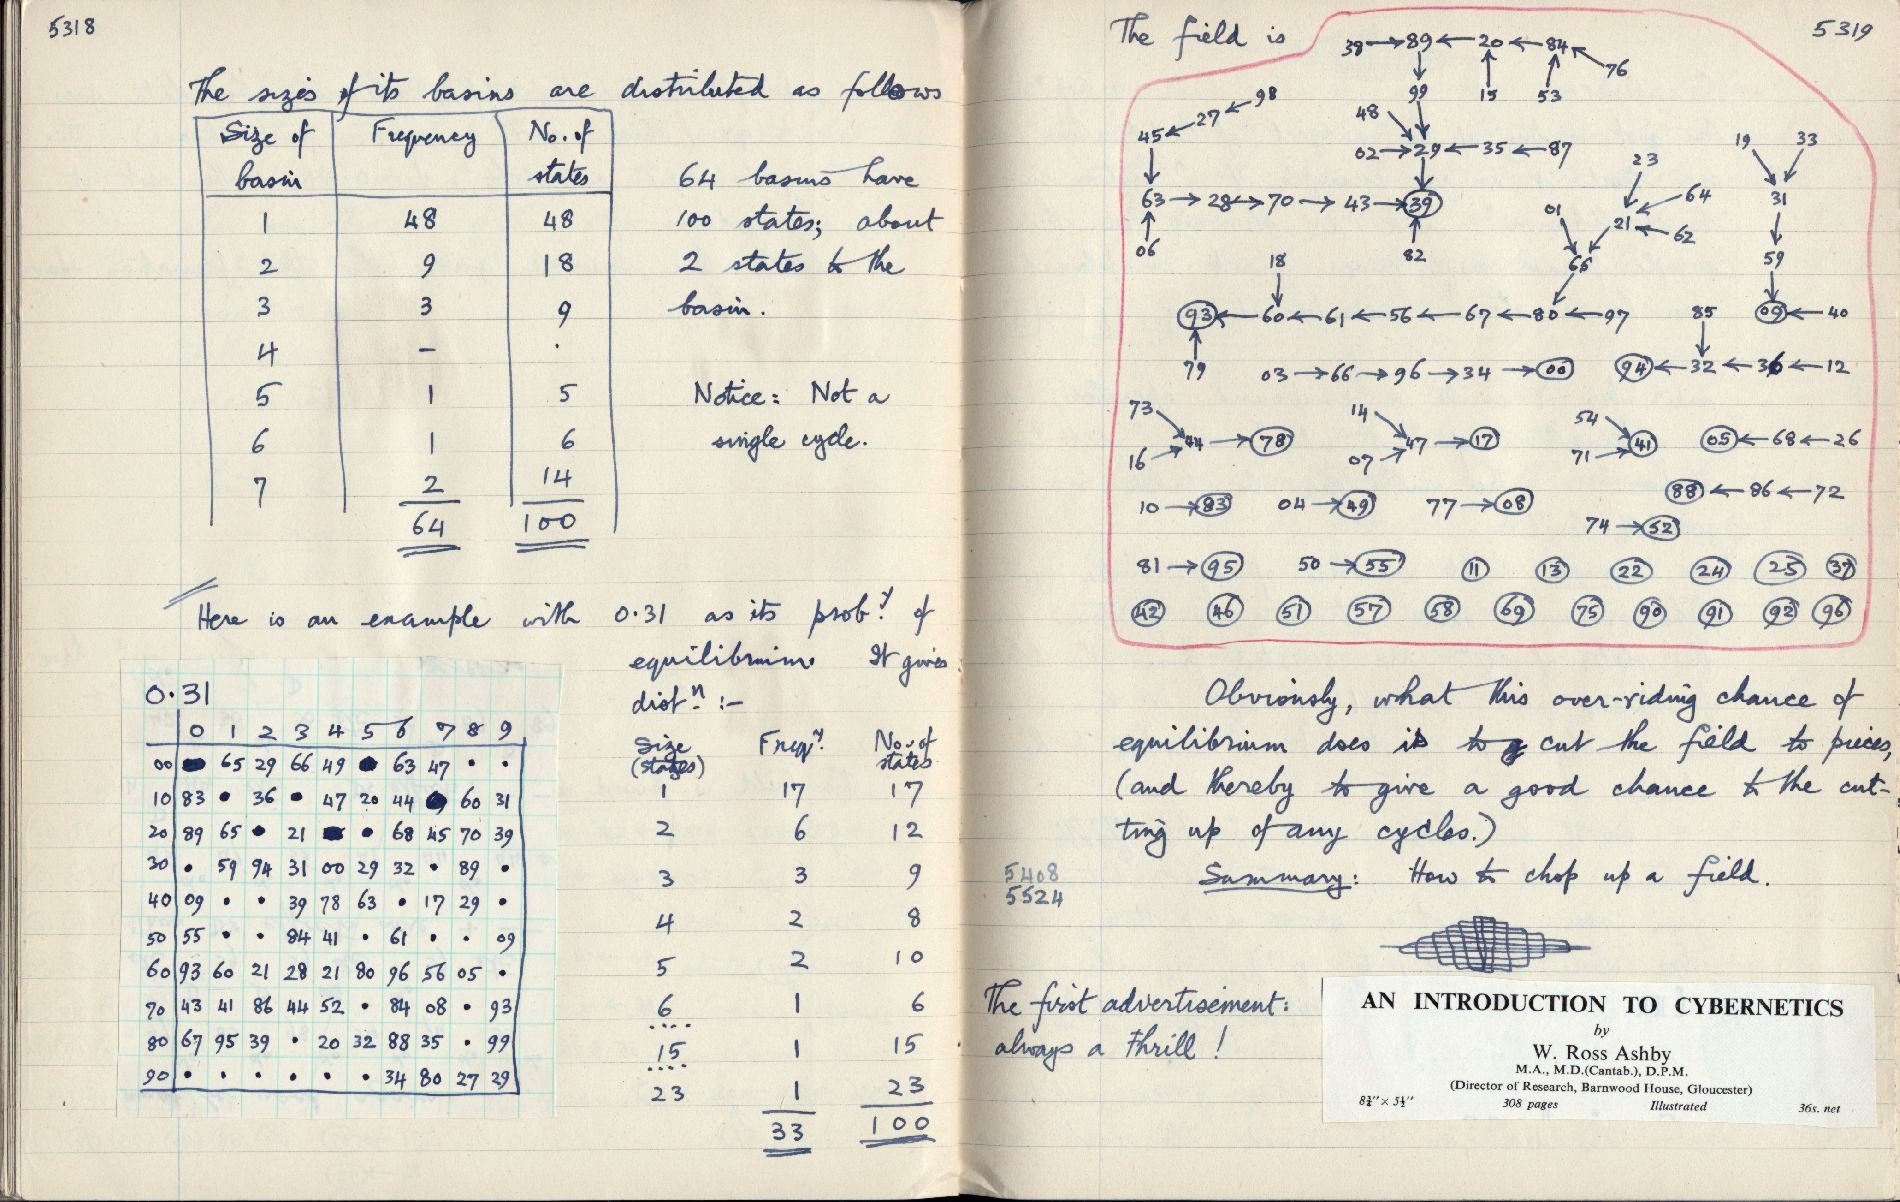 5318
The sizes of its basins are distributed as follows
Size of basin Frequency No. of states
1 48 48
2 9 18
3 3 9
4 – ·
5 1 5
6 1 6
7 2 14
64 100
64 basins have
100 states; about
2 states to the
basin.
Notice: Not a
single cycle.
Here is an example with 0.31 as its prob.y of
equilibrium. It gives
distn :-
0.31
0 1 2 3 4 5 6 7 8 9
00 ● 65 29 66 49 ● 63 47 • •
10 83 • 36 • 47 20 44 ● 60 31
20 89 65 • 21 ● • 68 45 70 39
30 • 59 94 31 00 29 32 • 89 •
40 09 • • 39 78 63 • 17 29 •
50 55 • • 84 41 • 61 • • 09
60 93 60 21 28 21 80 96 56 05 •
70 43 41 86 44 52 • 84 08 • 93
80 67 95 39 • 20 32 88 35 • 99
90 • • • • • • 34 80 27 29
Size (states) Freqy. No. of states
1 17 17
2 6 12
3 3 9
4 2 8
5 2 10
6 1 6
....
15 1 15
....
23 1 23
33 100
5319
The field is
38 → 89 ← 20 ← 84
76
99 15 53
98
27
45
48
02 → 29 ← 35 ← 87
19 33
23
63 → 28 → 70 → 43 → 39
64
31
01
21
62
06
82
18
65
59
93 ← 60 ← 61 ← 56 ← 67 ← 80 ← 97
85
09 ← 40
79
03 → 66 → 96 → 34 → 00
94 ← 32 ← 36 ← 12
73
16
44 → 78
14
07
47 → 17
54
71
41
05 ← 68 ← 26
10 → 83
04 → 49
77 → 08
88 ← 86 ← 72
74 → 52
81 → 95
50 → 55
11 13 22 24 25 37
42 46 51 57 58 69 75 90 91 92 96
Obviously, what this over-riding chance of
equilibrium does is to cut the field to pieces,
(and thereby to give a good chance to the cut-
ting up of any cycles.)
5408
5524
Summary: How to chop up a field.
The first advertisement:
always a thrill!
AN INTRODUCTION TO CYBERNETICS
by
W. Ross Ashby
M.A., M.D.(Cantab.), D.P.M.
(Director of Research, Barnwood House, Gloucester)
8¾″ × 5½″ 308 pages Illustrated 36s. net